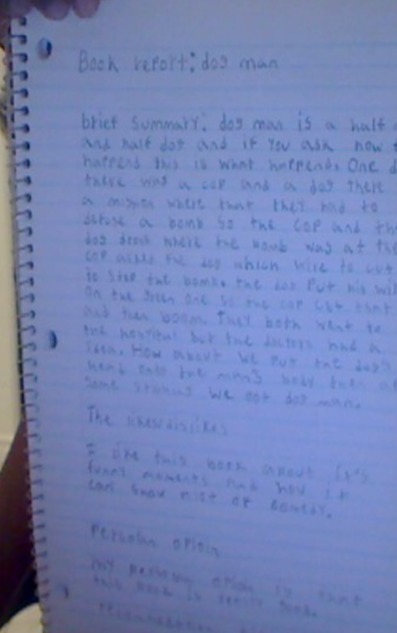 Book report: dog man
brief summary: dog man is a half
and half dog and if you ask how
happend this is what happend. One
there was a cop and a dog there
a mission where that they had to
defuse a bomb so the cop and the
dog drove where the bomb was at the
cop asked the dog which wire to cut
to stop the bomb. the dog put his
on the green one so the cop cut that
and then boom. They both went to
the hospital but the doctors had a
idea. How about we put the dog's
head onto the man's body then
some we got dog man.
The likes/dislikes
I like this book about it's
funny moments and how it
can show of comedy.
Personal
my in that
this book is